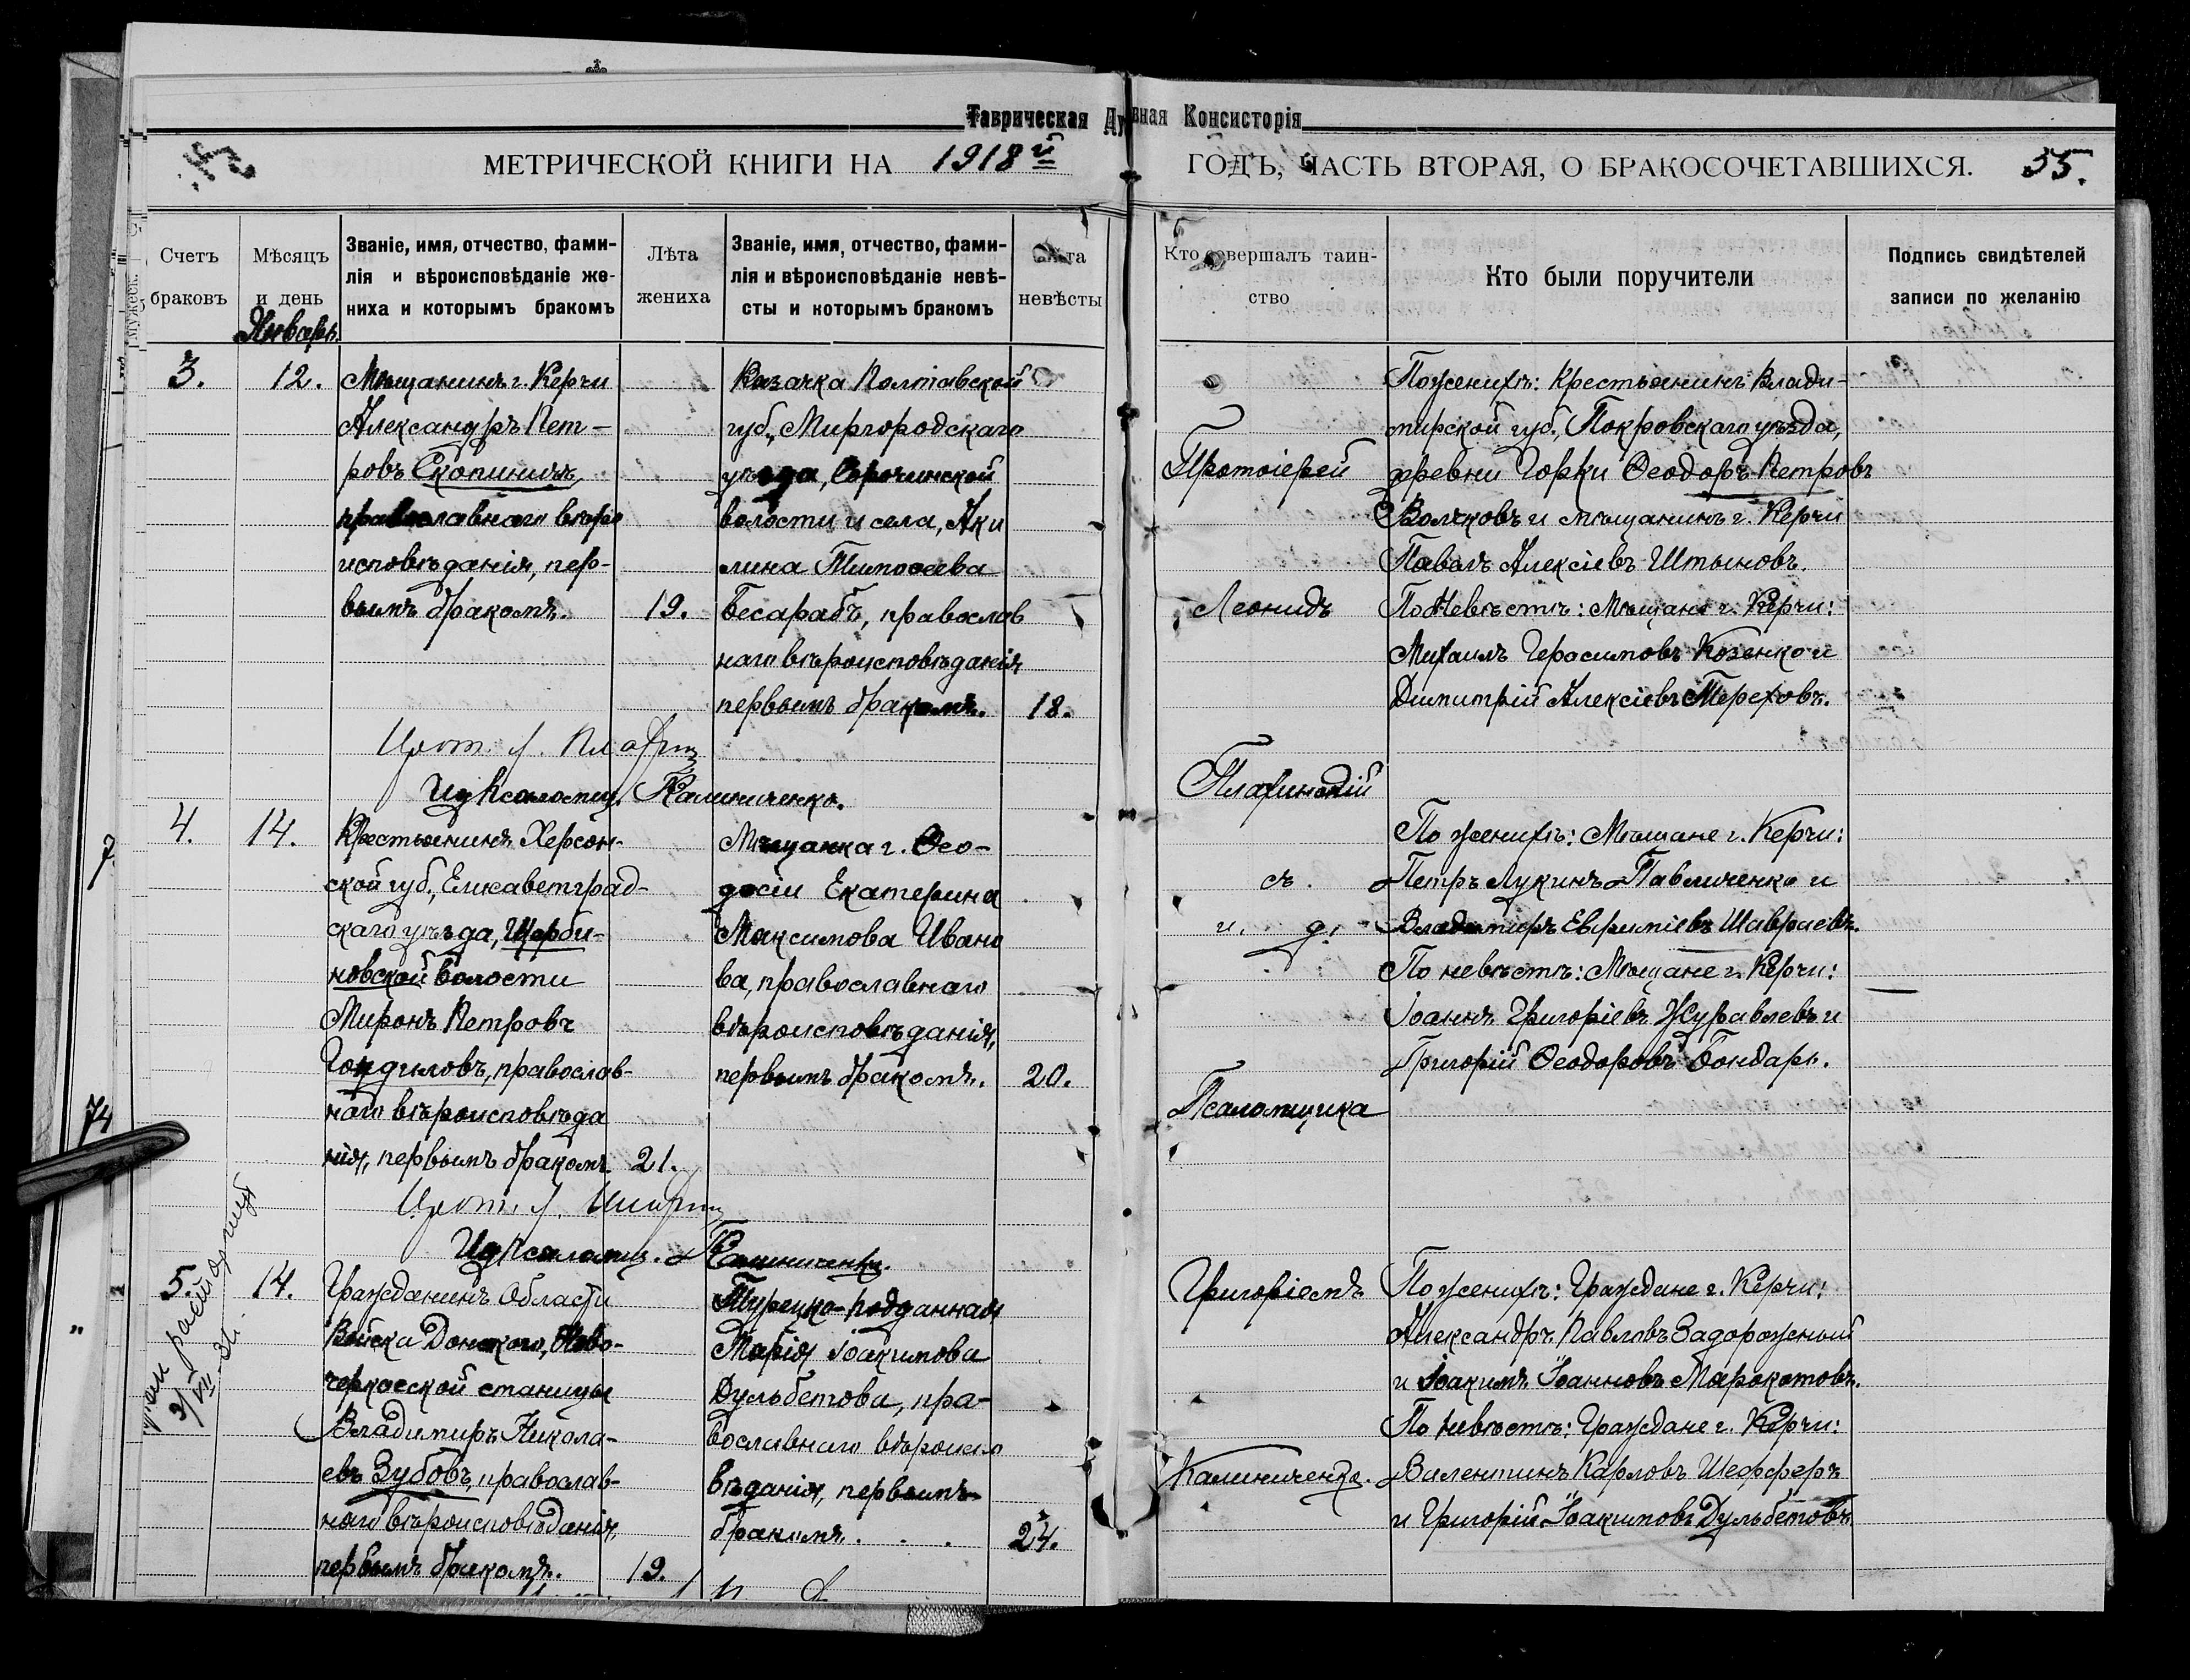 Таврическая Ду вная Консисторія
МЕТРИЧЕСКОЙ КНИГИ НА 1918й
ГОДЪ, ЧАСТЬ ВТОРАЯ, О БРАКОСОЧЕТАВШИХСЯ. 55.
Счетъ браковъ
Мѣсяцъ и день
Званіе, имя, отчество, фами-
лія и вѣроисповѣданіе же-
ниха и которымъ бракомъ
Лѣта жениха
Званіе, имя, отчество, фами-
лія и вѣроисповѣданіе невѣ-
сты и которымъ бракомъ
Лѣта невѣсты
Кто совершалъ таин-
ство
Кто были поручители
Подпись свидѣтелей
записи по желанію
Январь.
3.
12.
Мѣщанинъ г. Керчи
Александръ Пет-
ровъ Скопинъ,
православнаго вѣро
исповѣданія, пер-
вымъ бракомъ.
19.
Казачка Полтавской
губ., Миргородскаго
уѣзда, Сорочинской
волости и села, Аки
лина Тимоѳеева
Бесарабъ, православ
наго вѣроисповѣданія
первымъ бракомъ.
18.
Прот. Л.
И д Псаломщ. Калиниченко.
Протоіерей
Леонидъ
По женихѣ: Крестьянинъ Влади-
мирской губ., Покровскаго уѣзда,
деревни Горки Ѳеодоръ Петровъ
Волковъ и мѣщанинъ г. Керчи
Павелъ Алексіевъ Штыновъ.
По Невѣстѣ: Мѣщане г. Керчи:
Михаилъ Герасимовъ Козенко и
Димитрій Алексіевъ Тереховъ.
4.
14.
Крестьянинъ Херсон-
ской губ., Елисаветград-
скаго уѣзда, Щерби-
новской волости
Миронъ Петровъ
Гондиловъ, православ-
наго вѣроисповѣда
нія, первымъ бракомъ.
21.
Мѣщанка г. Ѳео-
досіи Екатерина
Максимова Ивано
ва, православнаго
вѣроисповѣданія,
первымъ бракомъ.
20.
Прот. Л.
И д Псаломщ. Калиниченко.
Плагинскій
съ
и. д.
Псаломщика
По женихѣ: Мѣщане г. Керчи:
Петръ Лукинъ Павличенко и
Владимиръ Евфиміевъ Шавраевъ.
По невѣстѣ: Мѣщане г. Керчи:
Іоаннъ Григоріевъ Журавлевъ и
Григорій Ѳеодоровъ Бондарь.
7.
74
5.
14.
Гражданинъ Области
Войска Донского, Ново-
черкасской станицы
Владимиръ Никола-
евъ Зубовъ, православ-
наго вѣроисповѣданія,
первымъ бракомъ.
19.
Турецко-подданная
Марія Іоакимова
Дульбетова, пра-
вославнаго вѣроиспо
вѣданія, первымъ
бракомъ.
24.
Григоріемъ
Калиниченко.
По женихѣ: Граждане г. Керчи:
Александръ Павловъ Задорожный
и Іоакимъ Іоанновъ Марокотовъ.
По невѣстѣ: Граждане г. Керчи:
Валентинъ Карловъ Шефферъ
и Григорій Іоакимовъ Дульбетовъ.